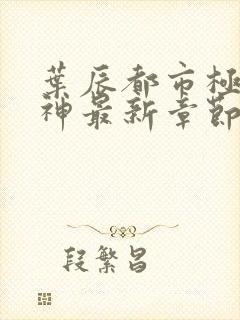 葉辰都市極
神最新章節
段繁昌